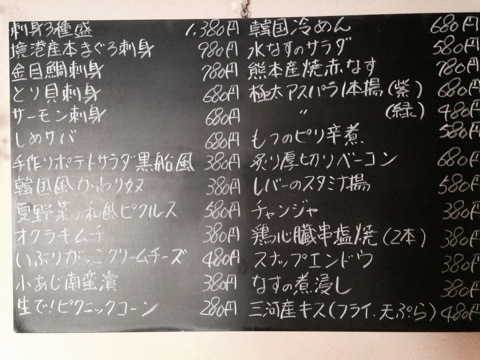 刺身3種盛 1,380円
境港産本まぐろ刺身 980円
金目鯛刺身 780円
とり貝刺身 680円
サーモン刺身 680円
しめサバ 680円
手作りポテトサラダ黒船風 380円
韓国風かわりヤッコ 380円
夏野菜の和風ピクルス 580円
オクラキムチ 380円
いぶりがっこクリームチーズ 480円
小あじ南蛮漬 380円
生で!ピクニックコーン 280円
韓国冷めん 680円
水なすのサラダ 580円
熊本産焼赤なす 780円
極太アスパラ1本揚(紫) 680円
〃 (緑) 480円
もつのピリ辛煮 580円
炙り厚切りベーコン 680円
レバーのスタミナ揚 580円
チャンジャ 380円
鶏心臓串塩焼(2本) 380円
スナップエンドウ 380円
なすの煮浸し 380円
三河産キス(フライ.天ぷら) 480円